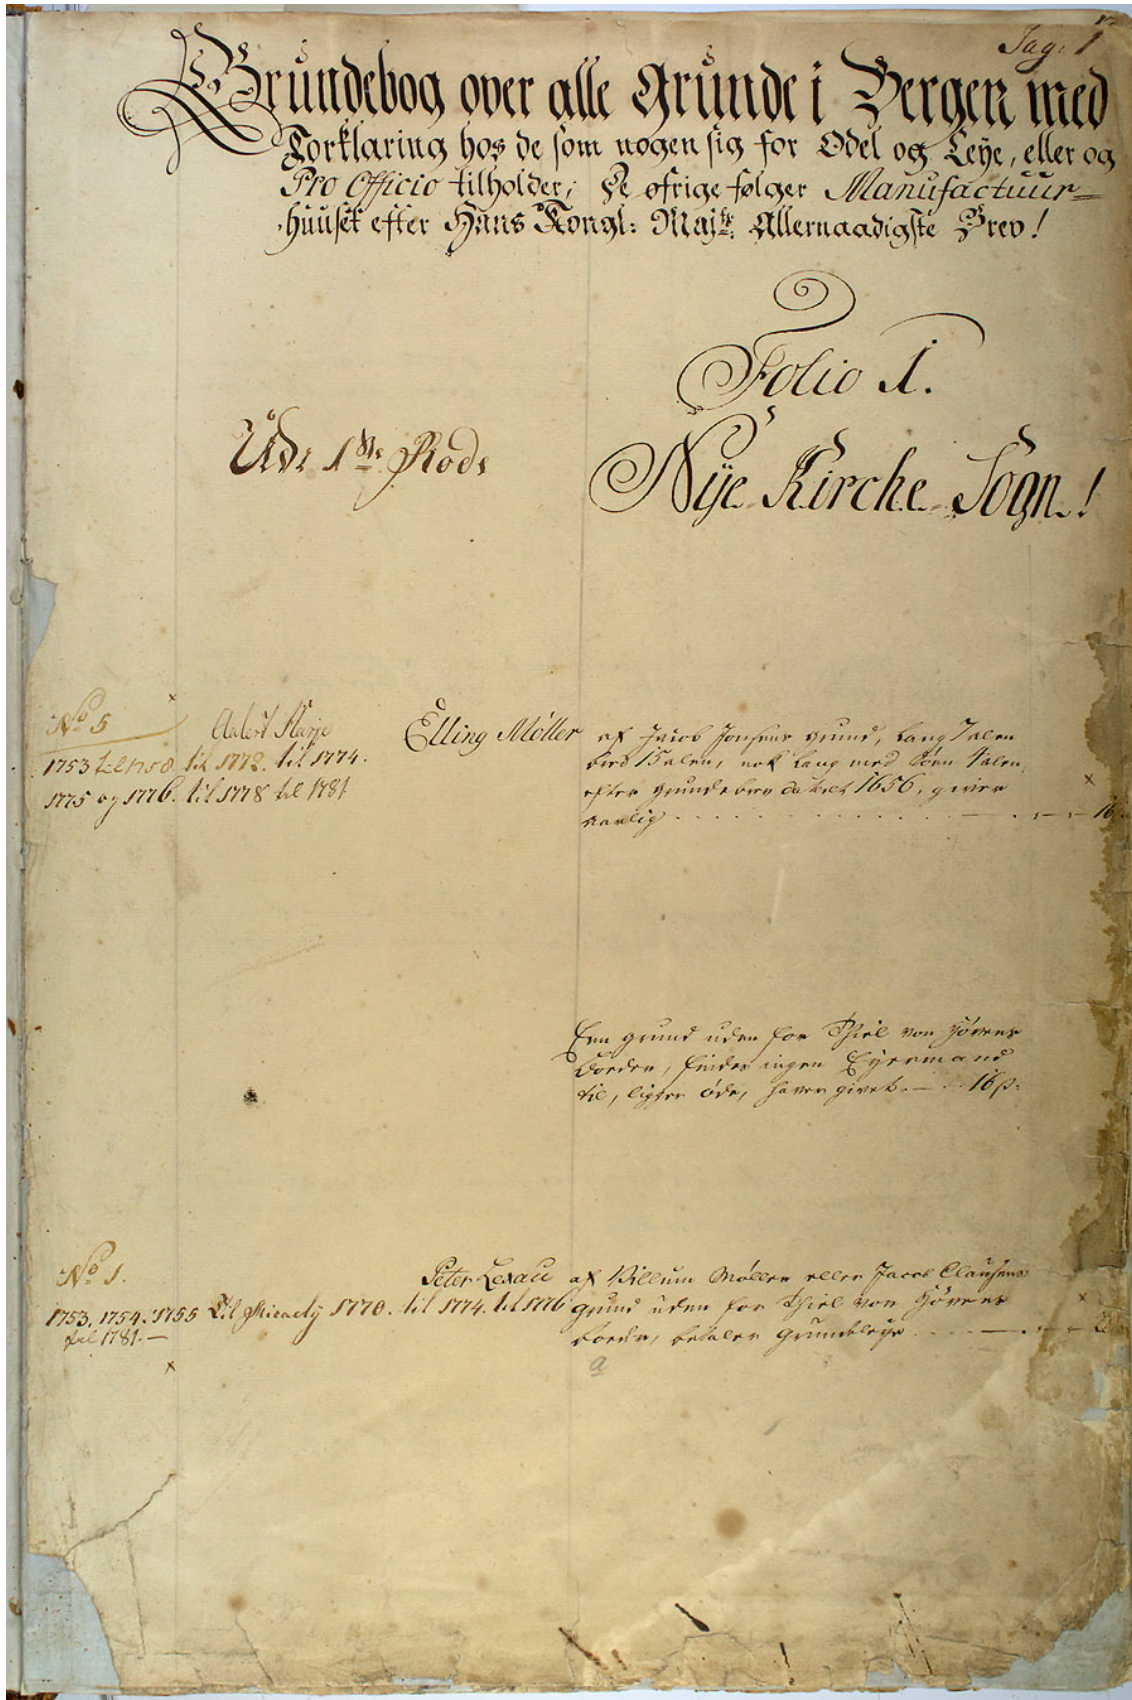 Pag: 1
Grundebog over alle Grunde i Bergen med
Forklaring hos de som nogen sig for Odel og Leye, eller og
Pro Officio tilholder; De øfrige følger Manufactuur=
huuset efter Hans Kongl: Majts: Allernaadigste Brev!
Folio 1.
Udi 1ste Rode
Nÿe Kirche Sogn!
No 5
1753 til 1758. til 1772. til 1774.
1775 og 1776. til 1778 til 1781
Elling Møller
af Jacob Jonsens grund, lang 7 alen
bred 15 alen, nok lang med Søen 4 alen,
efter grundebrev dateret 1656, giver
aarlig - 16
Een grund uden for Thiel von Høvens
boeder, findes ingen Eyermand
til, ligger öde, haver givet. — 16 ß.
No 1.
Peter Lexau
1753. 1754. 1755 Til Micaely 1770. til 1774. til 1776
til 1781. —
af Villum Møller eller Jacob Clausens
grund uden for Thiel von Høvens
boeder, betaler grundeleye
a